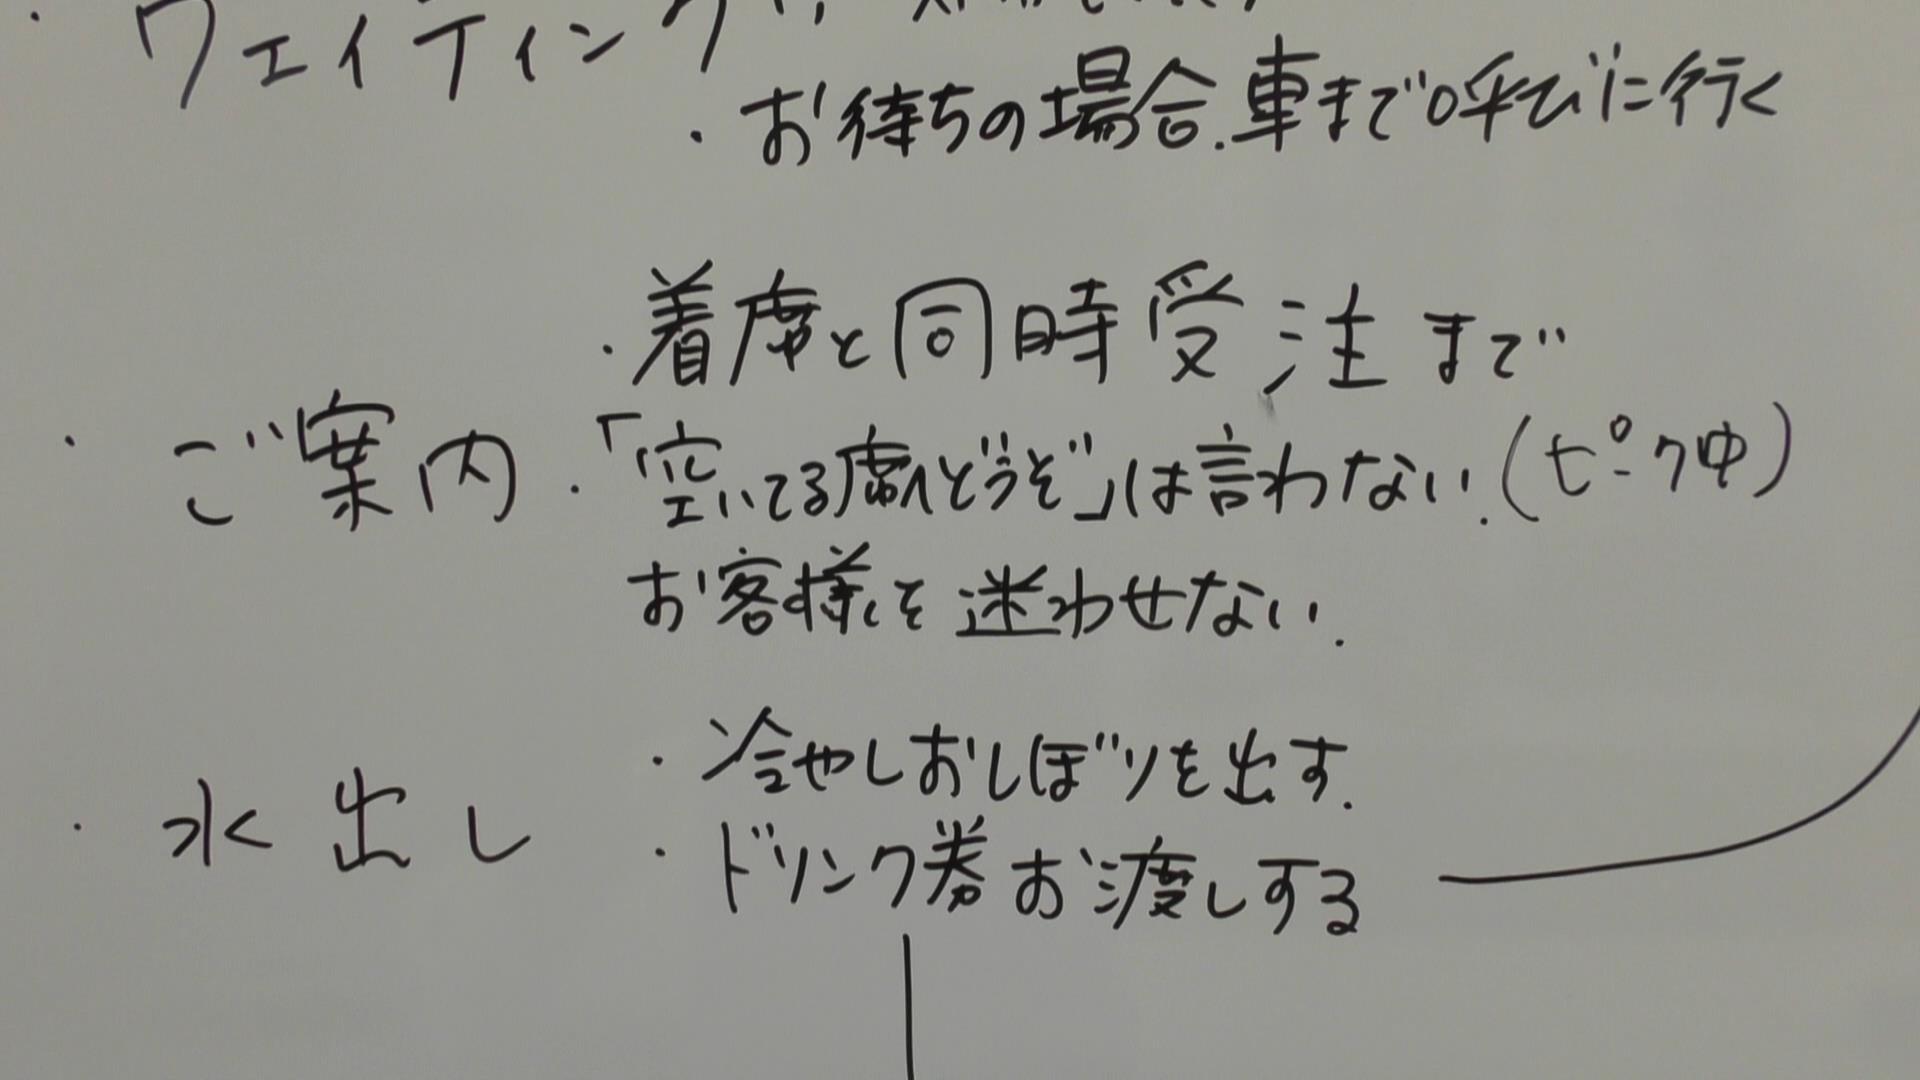 ・ウェイティング
・お待ちの場合.車まで呼びに行く
・着席と同時受注まで
・ご案内・「空いてる席へどうぞ」は言わない.(ピーク中)
お客様を迷わせない.
・冷やしおしぼりを出す.
・水出し
・ドリンク券お渡しする